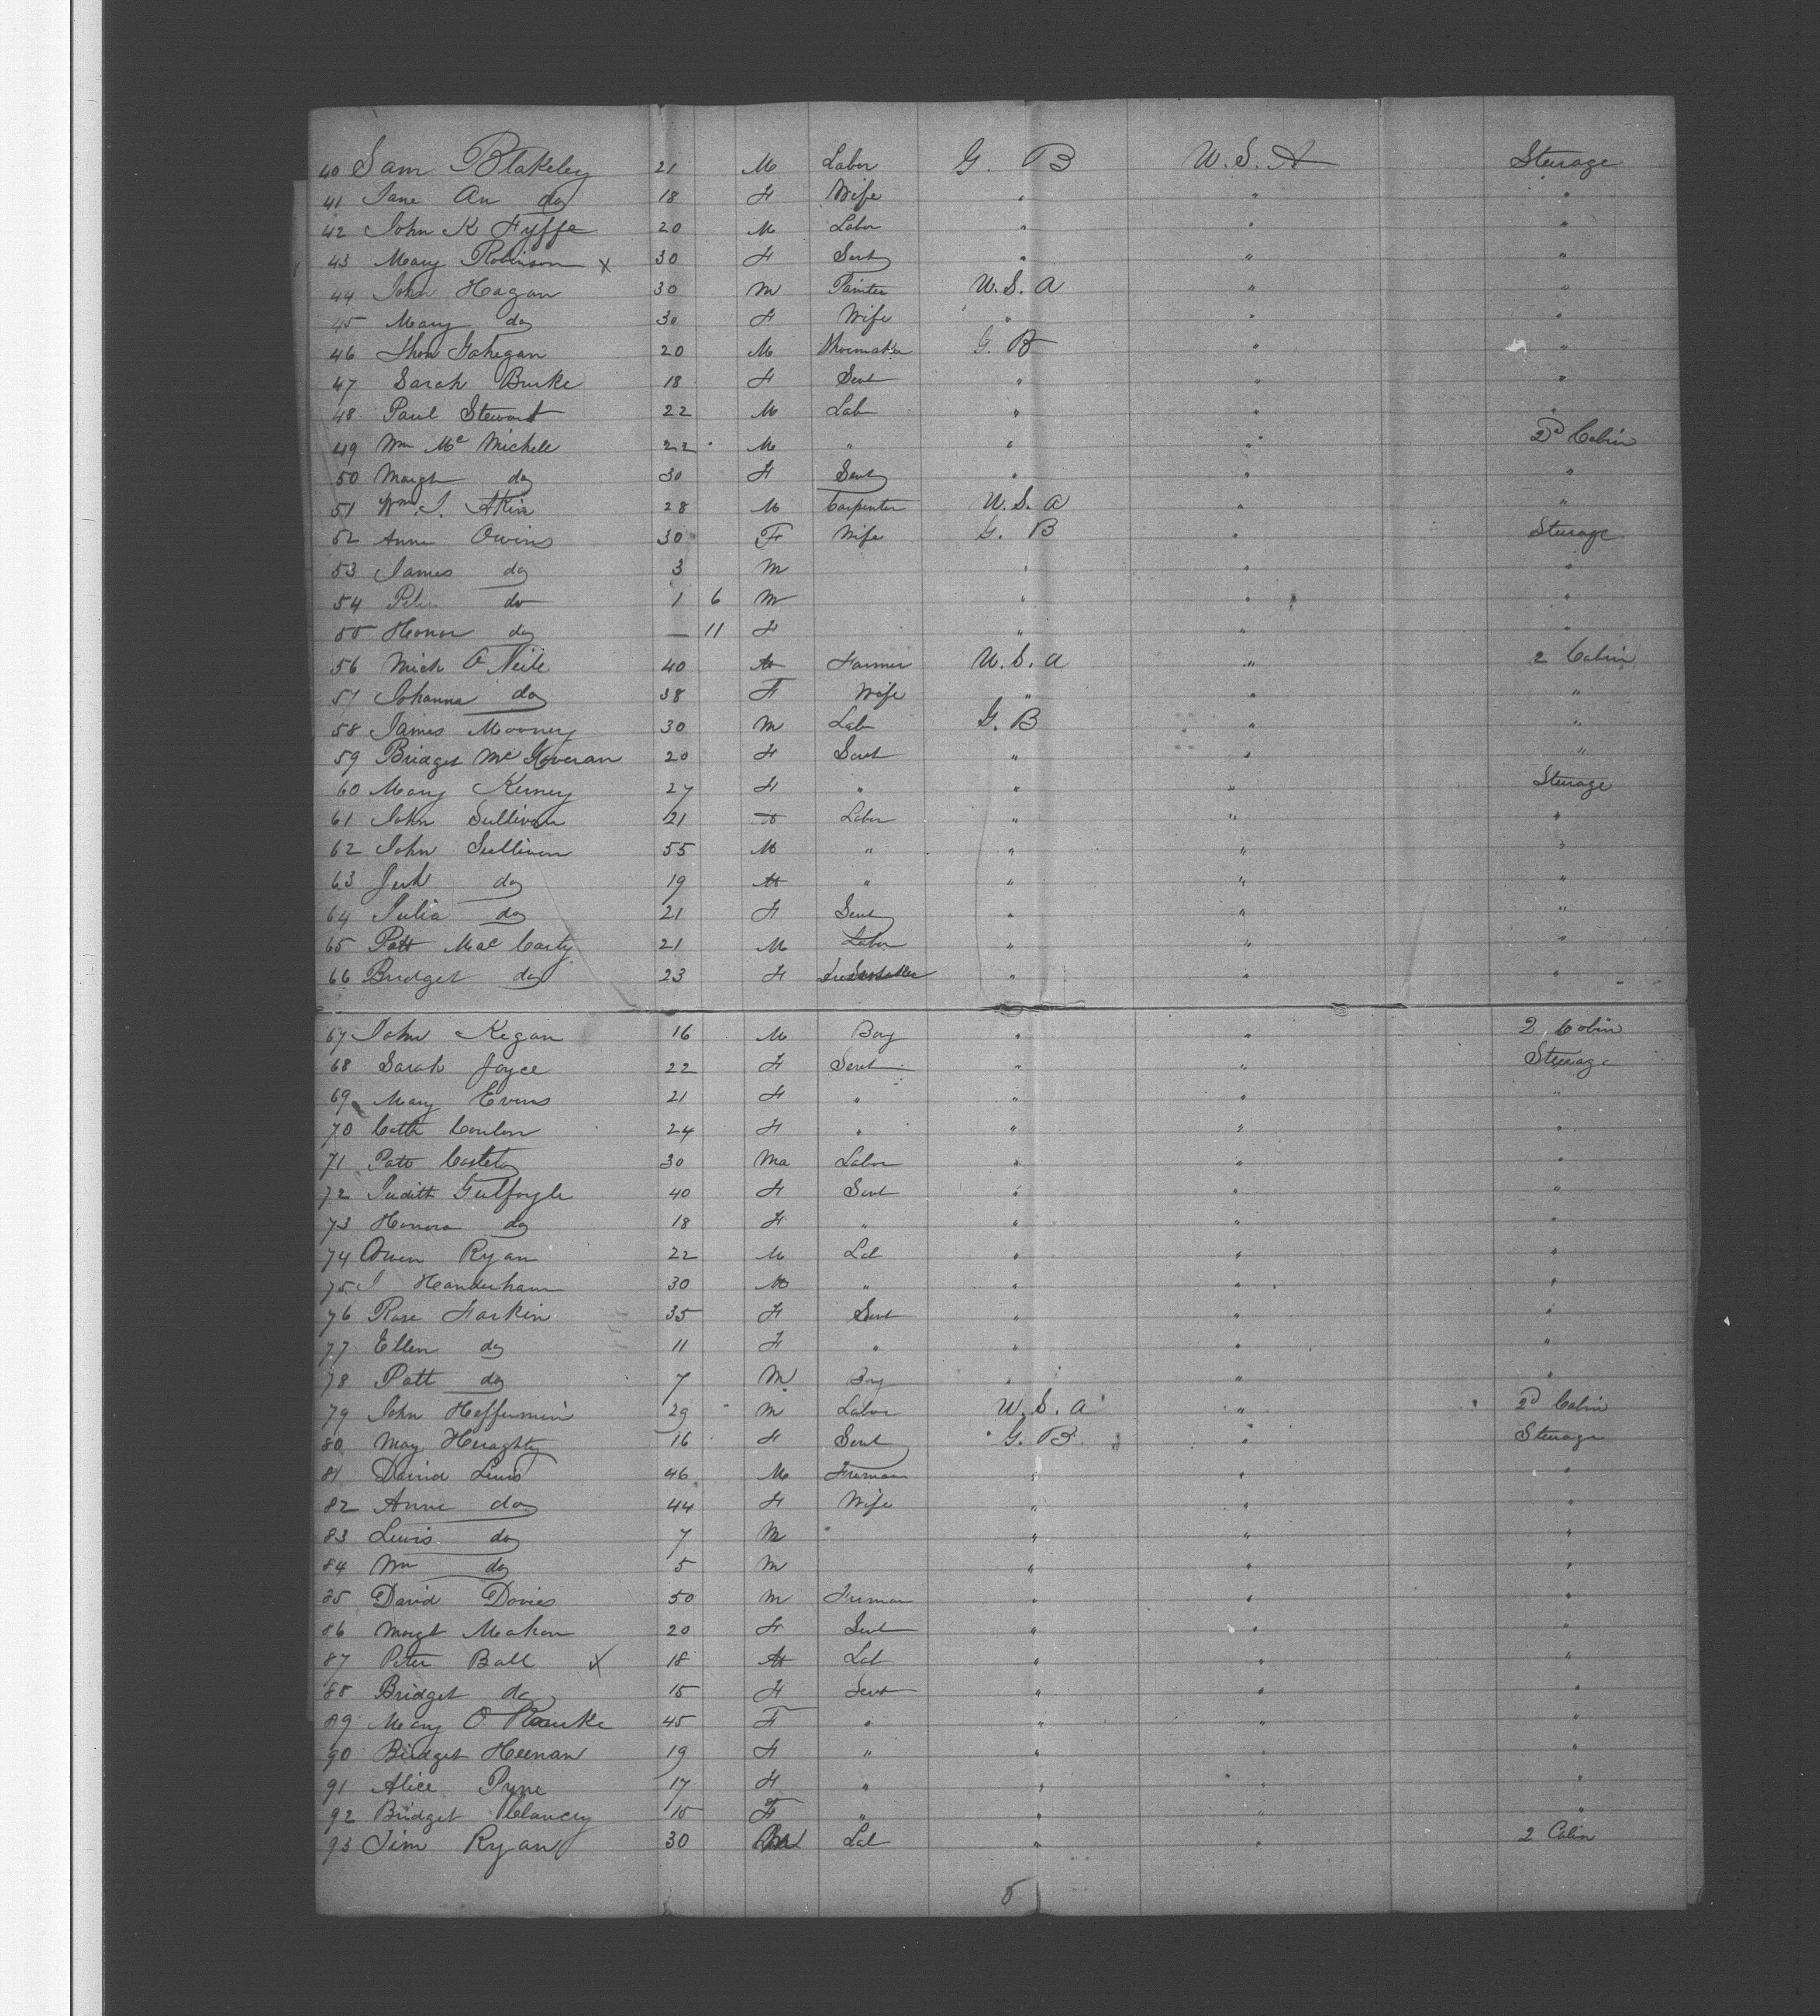 40 Sam Blakeley 21 M Labor G. B U. S. A Sterage
41 Jane An do 18 F Wife " " "
42 John K Fyffe 20 M Labor " " "
43 Mary Robinson x 30 F Sert " " "
44 John Hagan 30 M Painter U. S. A " "
45 Mary do 30 F Wife " " "
46 Thos Gahegan 20 M Shoemaker G. B " "
47 Sarah Burke 18 F Sevt " " "
48 Paul Stewart 22 M Lab " " "
49 Wm Mc Michell 22 M " " " 2d Cabin
50 Margt do 30 F Sevt " "
51 Wm J. Akin 28 M Carpenter U. S. A " "
52 Anne Owins 30 F Wife G. B " Sterage
53 James do 3 M " " "
54 Peter do 1 6 M " " "
55 Honor do — 11 F " " "
56 Mich O Neile 40 M Farmer U. S. A " 2 Cabin
57 Johanna do 38 F Wife " " "
58 James Mooney 30 M Lab G. B " "
59 Bridget Mc Goveran 20 F Sevt " " "
60 Mary Kerney 27 F " " " Sterage
61 John Sullivan 21 M Labor " " "
62 John Sullivan 55 M " " " "
63 Jerh do 19 M " " " "
64 Julia do 21 F Sevt " " "
65 Patt Mac Carty 21 M Labor " " "
66 Bridget do 23 F " " "
67 John Kegan 16 M Boy " " 2 Cabin
68 Sarah Joyce 22 F Sevt " " Sterage
69 Mary Evens 21 F " " " "
70 Cath Conlon 24 F " " " "
71 Patt 30 Ma Labor " " "
72 Judith Gulfoyle 40 F Sevt " " "
73 Honora do 18 F " " " "
74 Owen Ryan 22 M Lab " " "
75 J Handerham 30 M " " " "
76 Rose Harkin 35 F Sevt " " "
77 Ellen do 11 F " " " "
78 Patt do 7 M Boy " " "
79 John Heffernin 29 M Labor U. S. A " 2d Cabin
80 May Heraghty 16 F Sevt G. B. " Sterage
81 David Lewis 46 M Fireman " " "
82 Anne do 44 F Wife " " "
83 Lewis do 7 M " " " "
84 Wm do 5 M " " "
85 David Davies 50 M Firman " " "
86 Margt Meahan 20 F Sevt " " "
87 Peter Ball x 18 M Lab " " "
88 Bridget do 15 F Sevt " " "
89 Mary O Rourke 45 F " " " "
90 Bridget Heenan 19 F " " " "
91 Alice Pyne 17 F " " " "
92 Bridget Clancey 15 F " " " "
93 Jim Ryan 30 M Lab " " 2 Cabin